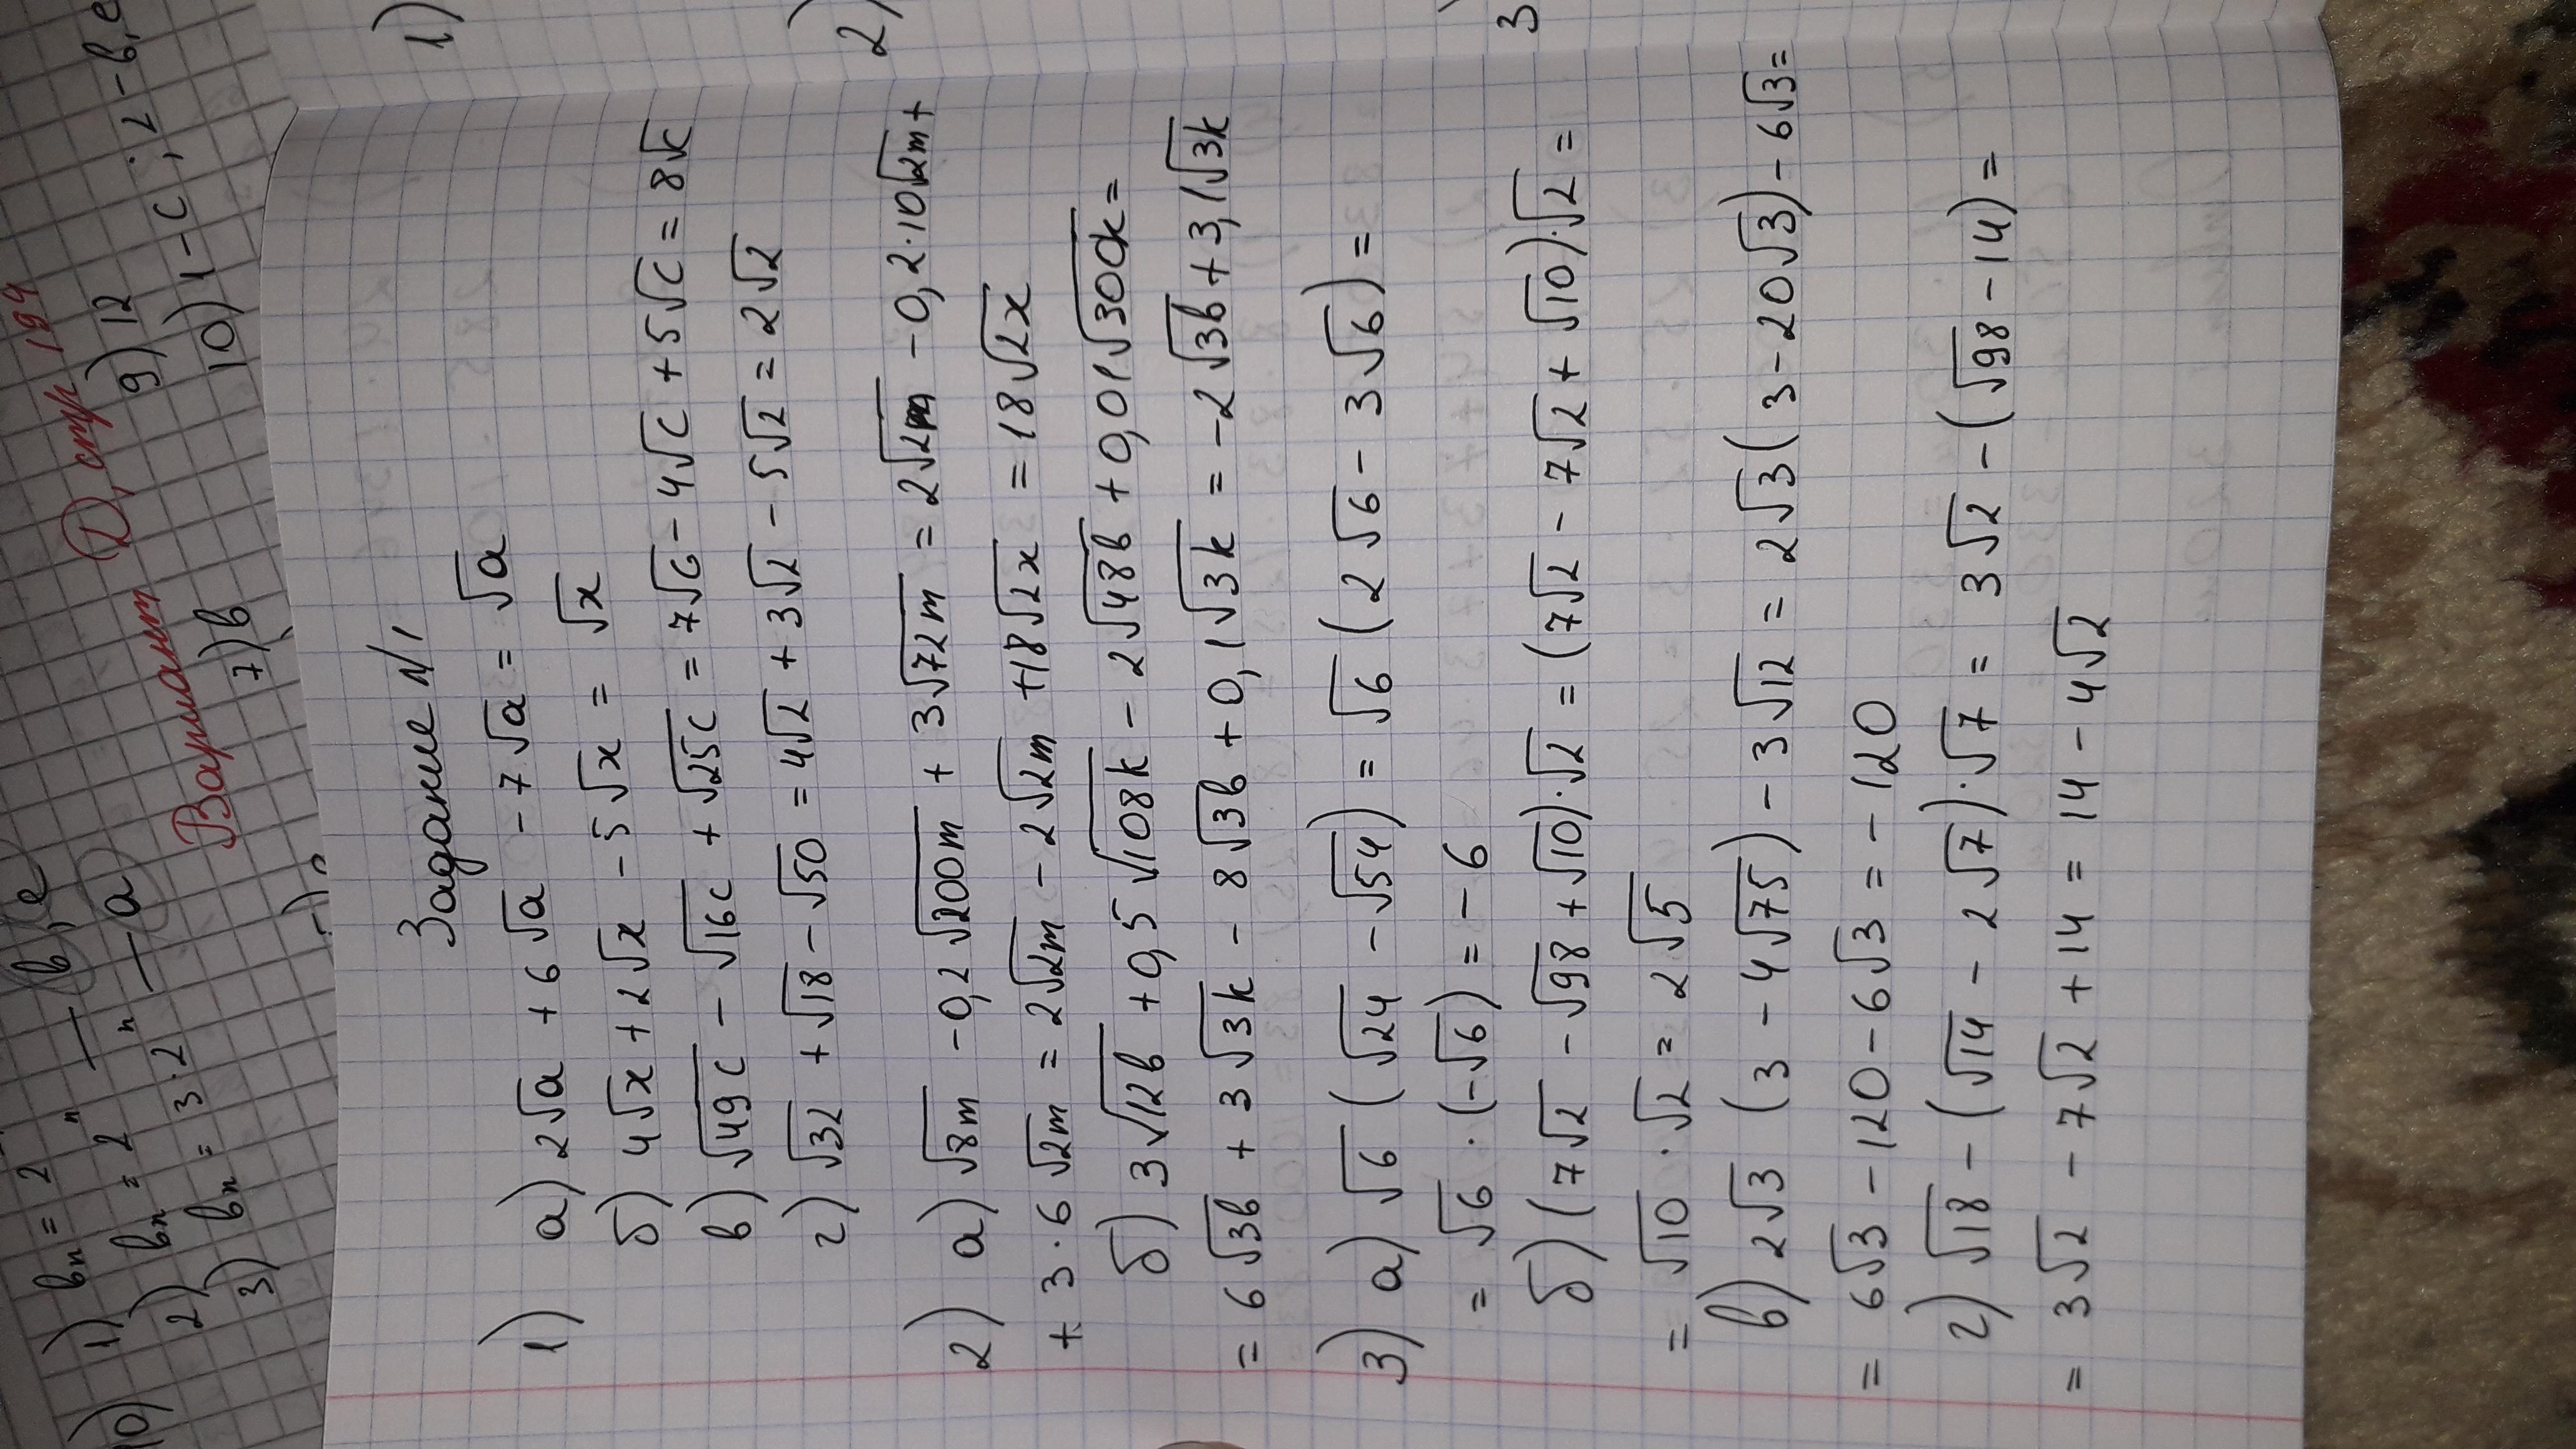 10) 1) bₙ = 2ⁿ — b, e
2) bₙ = 2ⁿ — a
3) bₙ = 3·2
Вариант D, стр 194
7) b
9) 12
10) 1 - c; 2 - b, e
Задание N1
1) а) 2√a + 6√a - 7√a = √a
б) 4√x + 2√x - 5√x = √x
в) √49c - √16c + √25c = 7√c - 4√c + 5√c = 8√c
г) √32 + √18 - √50 = 4√2 + 3√2 - 5√2 = 2√2
2) а) √8m - 0,2√200m + 3√72m = 2√2m - 0,2·10√2m +
+ 3·6√2m = 2√2m - 2√2m + 18√2x = 18√2x
б) 3√12b + 0,5√108k - 2√48b + 0,01√300k =
= 6√3b + 3√3k - 8√3b + 0,1√3k = -2√3b + 3,1√3k
3) а) √6 (√24 - √54) = √6 (2√6 - 3√6) =
= √6 · (-√6) = -6
б) (7√2 - √98 + √10)·√2 = (7√2 - 7√2 + √10)·√2 =
= √10 · √2 = 2√5
в) 2√3 (3 - 4√75) - 3√12 = 2√3(3 - 20√3) - 6√3 =
= 6√3 - 120 - 6√3 = -120
г) √18 - (√14 - 2√7)·√7 = 3√2 - (√98 - 14) =
= 3√2 - 7√2 + 14 = 14 - 4√2
1)
2)
3